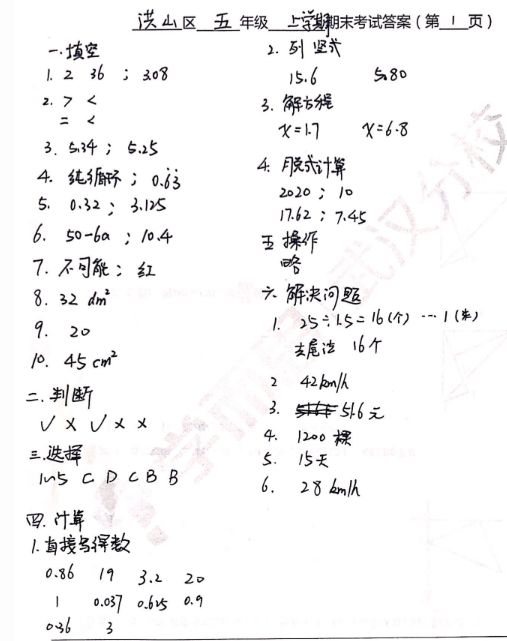 洪山区 五 年级 上学期 期末考试答案(第 1 页)
一.填空
1. 2 36 ; 3.08
2. > <
= <
3. 5.34 ; 5.25
4. 纯循环 ; 0.6̇3̇
5. 0.32 ; 3.125
6. 50-6a ; 10.4
7. 不可能 ; 红
8. 32 dm²
9. 20
10. 45 cm²
二.判断
√ × √ × ×
三.选择
1~5 C D C B B
四.计算
1.直接写得数
0.86 19 3.2 20
1 0.037 0.625 0.9
0.36 3
2. 列竖式
15.6 5.80
3. 解方程
x=1.7 x=6.8
4. 脱式计算
2020 ; 10
17.62 ; 7.45
五 操作
略
六. 解决问题
1. 25÷1.5=16(个) … 1(米)
去尾法 16个
2 42km/h
3. 51.6元
4. 1200棵
5. 15天
6. 28km/h
学而思 武汉分校